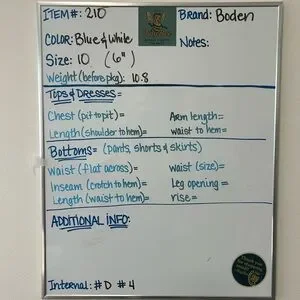 ITEM#: 210
Brand: Boden
COLOR: Blue & White
Notes:
Size: 10 (6")
Weight (before pkg): 10.8
Tops & Dresses=
Chest (pit to pit)=
Arm length=
Length (shoulder to hem)=
waist to hem=
Bottoms= (pants, shorts & skirts)
Waist (flat across)=
waist (size)=
Inseam (crotch to hem)=
Leg opening=
Length (waist to hem)=
rise=
ADDITIONAL INFO:
Internal: #D #4